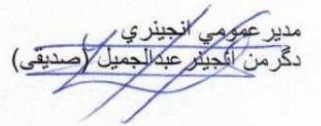 مدير عمومي انجينري
دگرمن انجينر عبدالجميل (صديقى)